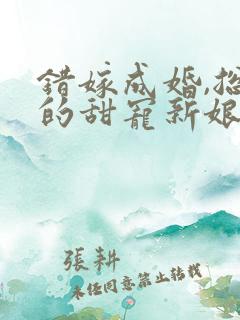 錯嫁成婚,總
的甜寵新娘
張耕
未任同意禁止转载